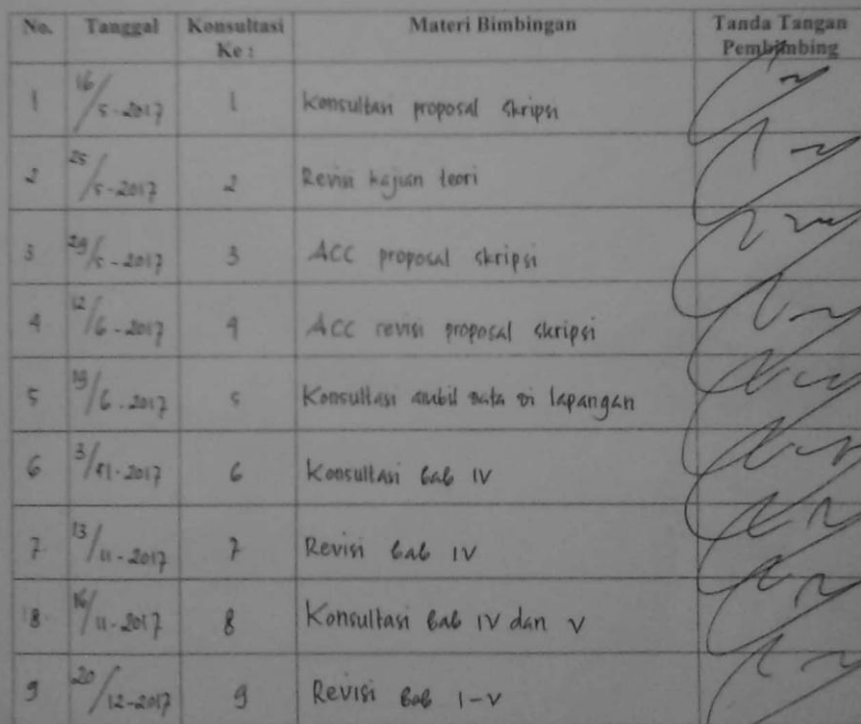 No. Tanggal Konsultasi Ke : Materi Bimbingan Tanda Tangan Pembimbing
1 16/5-2017 1 Konsultasi proposal skripsi
2 25/5-2017 2 Revisi kajian teori
3 29/5-2017 3 ACC proposal skripsi
4 12/6-2017 4 ACC revisi proposal skripsi
5 19/6-2017 5 Konsultasi ambil data di lapangan
6 3/11-2017 6 Konsultasi bab IV
7 13/11-2017 7 Revisi bab IV
8 16/11-2017 8 Konsultasi bab IV dan V
9 20/12-2017 9 Revisi Bab I-V